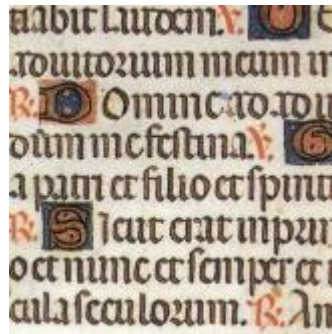 tiabit laudem. V. D
adiutorium meum in
R. Domine ad adiu
dum me festina. V. G
a patri et filio et spirit
R. Sicut erat in prin
o et nunc et semper et
cula seculorum. R. Am